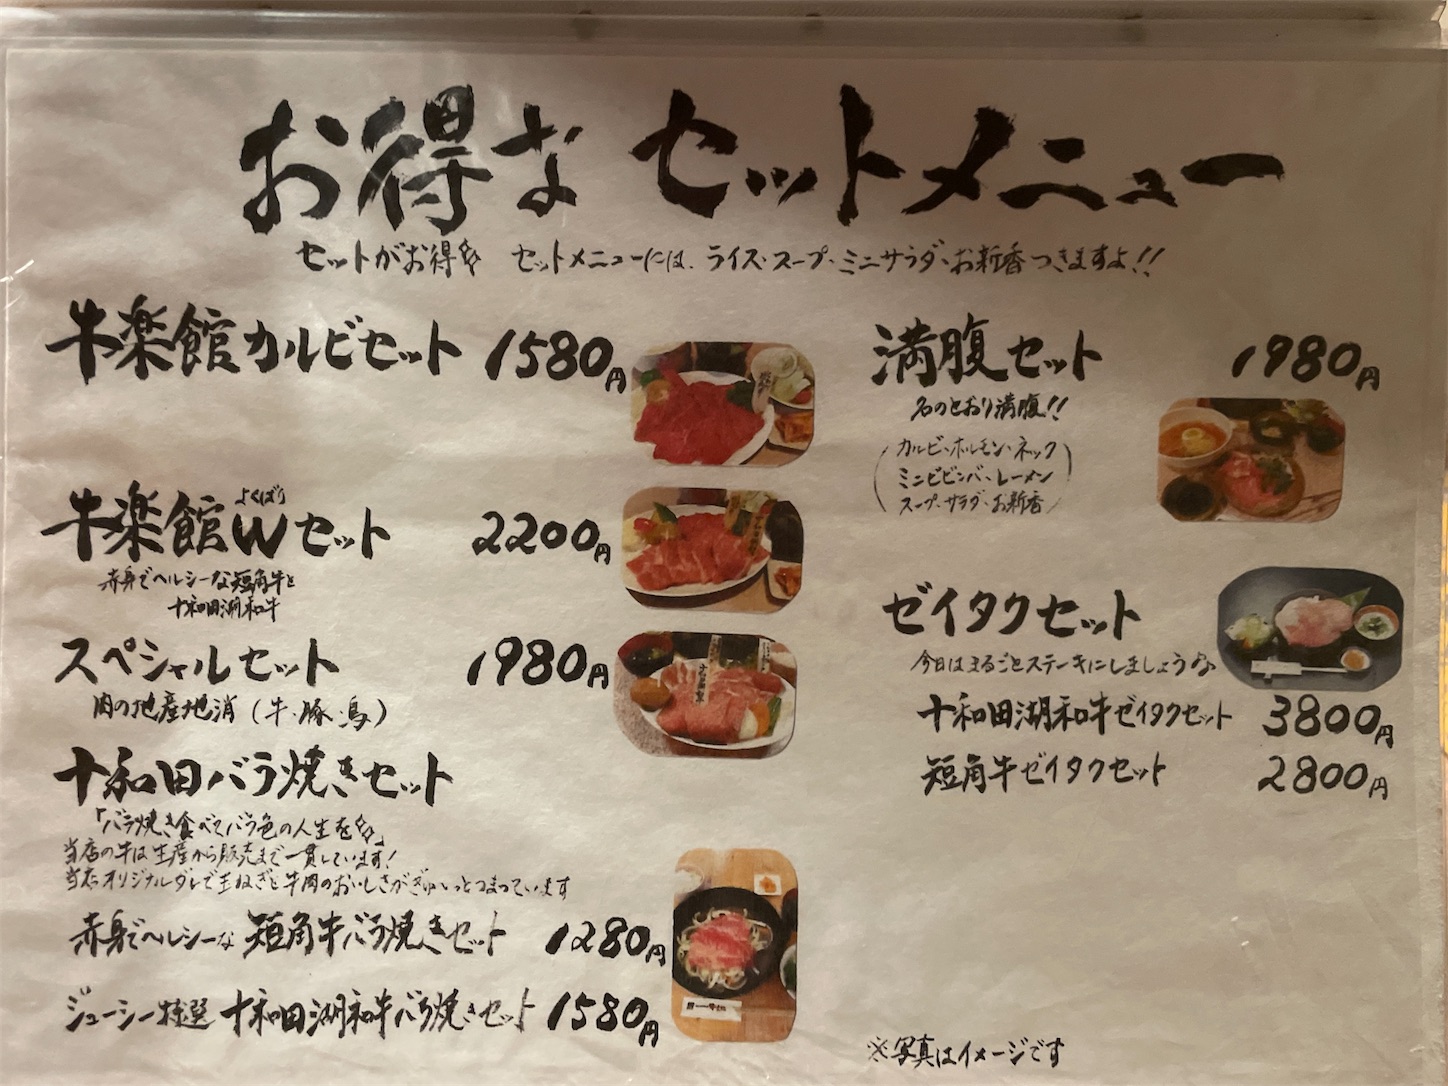 お得な セットメニュー
セットがお得 セットメニューには、ライス・スープ・ミニサラダ・お新香つきますよ!!
牛楽館カルビセット 1580円
よくばり
牛楽館Wセット 2200円
赤身でヘルシーな短角牛と
十和田湖和牛
スペシャルセット 1980円
肉の地産地消(牛・豚・鳥)
十和田バラ焼きセット
「バラ焼き食べてバラ色の人生を」
当店の牛は生産から販売まで一貫しています!
当店オリジナルダレで玉ねぎと牛肉のおいしさがぎゅーっとつまっています
赤身でヘルシーな 短角牛バラ焼きセット 1280円
ジューシー特選 十和田湖和牛バラ焼きセット 1580円
満腹セット 1980円
名のとおり満腹!!
(カルビ・ホルモン・ネック
ミニビビンバ・レーメン
スープ・サラダ・お新香)
ゼイタクセット
今日はまるごとステーキにしましょうか
十和田湖和牛ゼイタクセット 3800円
短角牛ゼイタクセット 2800円
※写真はイメージです